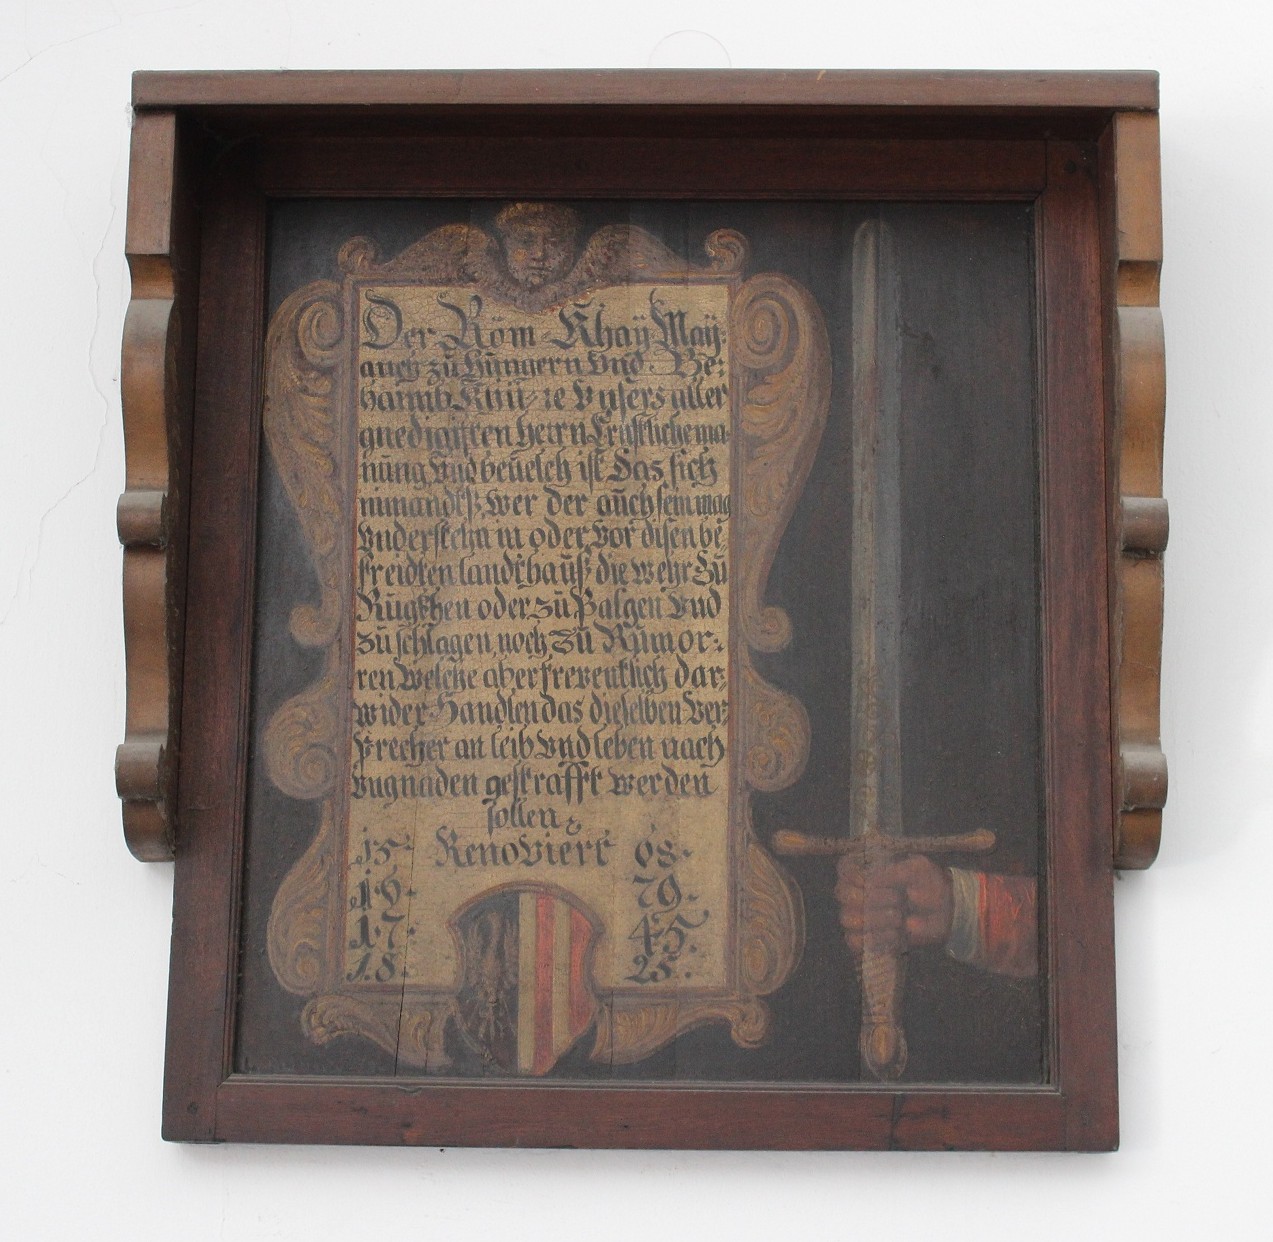 Der Röm Khaÿ Maÿ:
auch zu Hungern und Be:
haimb Khü: re Vnsers aller
gnedigisten herrn Ernstliche ma:
nung Vnd beuelch ist Das sich
nimandß Wer der auch sein mag
vnderstehn in oder vor disen be
freidten landthauß die wehr Zu
Rugkhen oder zu Palgen Vnd
zu schlagen noch zu Rumor:
ren Welche aber freuenlich dar
wider Handlen das dieselben Ver
precher an leib Vnd leben nach
vngnaden gestrafft werden
sollen
15 Renoviert 08.
16. 79.
17. 45.
18 25.